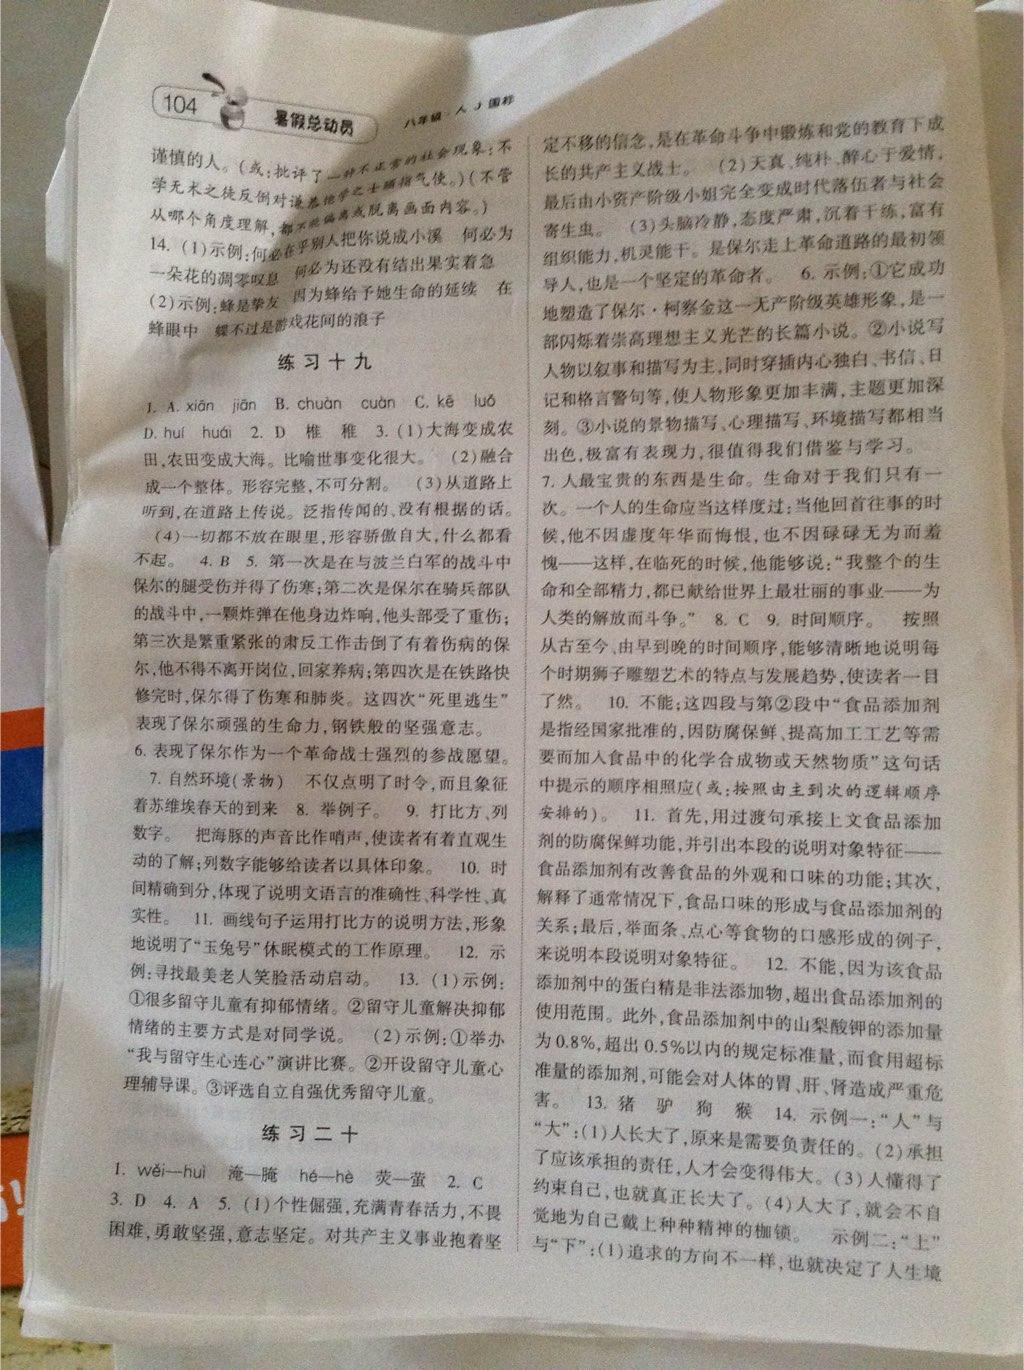 104
暑假总动员
八年级·人J国标
谨慎的人。(或:批评了一种不正常的社会现象:不
学无术之徒反倒对谦恭他学之士颐指气使。)(不管
从哪个角度理解,都不能偏离或脱离画面内容。)
14. (1)示例:何必在乎别人把你说成小溪 何必为
一朵花的凋零叹息 何必为还没有结出果实着急
(2)示例:蜂是挚友 因为蜂给予她生命的延续 在
蜂眼中 蝶不过是游戏花间的浪子
练习十九
1. A. xiān jiān B. chuàn cuàn C. kē luǒ
D. huí huái 2. D 椎 稚 3. (1)大海变成农
田,农田变成大海。比喻世事变化很大。 (2)融合
成一个整体。形容完整,不可分割。 (3)从道路上
听到,在道路上传说。泛指传闻的、没有根据的话。
(4)一切都不放在眼里,形容骄傲自大,什么都看
不起。 4. B 5. 第一次是在与波兰白军的战斗中
保尔的腿受伤并得了伤寒;第二次是保尔在骑兵部队
的战斗中,一颗炸弹在他身边炸响,他头部受了重伤;
第三次是繁重紧张的肃反工作击倒了有着伤病的保
尔,他不得不离开岗位,回家养病;第四次是在铁路快
修完时,保尔得了伤寒和肺炎。这四次“死里逃生”
表现了保尔顽强的生命力,钢铁般的坚强意志。
6. 表现了保尔作为一个革命战士强烈的参战愿望。
7. 自然环境(景物) 不仅点明了时令,而且象征
着苏维埃春天的到来 8. 举例子。 9. 打比方、列
数字。 把海豚的声音比作哨声,使读者有着直观生
动的了解;列数字能够给读者以具体印象。 10. 时
间精确到分,体现了说明文语言的准确性、科学性、真
实性。 11. 画线句子运用打比方的说明方法,形象
地说明了“玉兔号”休眠模式的工作原理。 12. 示
例:寻找最美老人笑脸活动启动。 13. (1)示例:
①很多留守儿童有抑郁情绪。②留守儿童解决抑郁
情绪的主要方式是对同学说。 (2)示例:①举办
“我与留守生心连心”演讲比赛。②开设留守儿童心
理辅导课。③评选自立自强优秀留守儿童。
练习二十
1. wěi—huì 淹—腌 hé—hè 荧—萤 2. C
3. D 4. A 5. (1)个性倔强,充满青春活力,不畏
困难,勇敢坚强,意志坚定。对共产主义事业抱着坚
定不移的信念,是在革命斗争中锻炼和党的教育下成
长的共产主义战士。 (2)天真、纯朴、醉心于爱情,
最后由小资产阶级小姐完全变成时代落伍者与社会
寄生虫。 (3)头脑冷静,态度严肃,沉着干练,富有
组织能力,机灵能干。是保尔走上革命道路的最初领
导人,也是一个坚定的革命者。 6. 示例:①它成功
地塑造了保尔·柯察金这一无产阶级英雄形象,是一
部闪烁着崇高理想主义光芒的长篇小说。②小说写
人物以叙事和描写为主,同时穿插内心独白、书信、日
记和格言警句等,使人物形象更加丰满,主题更加深
刻。③小说的景物描写、心理描写、环境描写都相当
出色,极富有表现力,很值得我们借鉴与学习。
7. 人最宝贵的东西是生命。生命对于我们只有一
次。一个人的生命应当这样度过:当他回首往事的时
候,他不因虚度年华而悔恨,也不因碌碌无为而羞
愧——这样,在临死的时候,他能够说:“我整个的生
命和全部精力,都已献给世界上最壮丽的事业——为
人类的解放而斗争。” 8. C 9. 时间顺序。 按照
从古至今、由早到晚的时间顺序,能够清晰地说明每
个时期狮子雕塑艺术的特点与发展趋势,使读者一目
了然。 10. 不能;这四段与第②段中“食品添加剂
是指经国家批准的,因防腐保鲜、提高加工工艺等需
要而加入食品中的化学合成物或天然物质”这句话
中提示的顺序相照应(或:按照由主到次的逻辑顺序
安排的)。 11. 首先,用过渡句承接上文食品添加
剂的防腐保鲜功能,并引出本段的说明对象特征——
食品添加剂有改善食品的外观和口味的功能;其次,
解释了通常情况下,食品口味的形成与食品添加剂的
关系;最后,举面条、点心等食物的口感形成的例子,
来说明本段说明对象特征。 12. 不能,因为该食品
添加剂中的蛋白精是非法添加物,超出食品添加剂的
使用范围。此外,食品添加剂中的山梨酸钾的添加量
为0.8%,超出0.5%以内的规定标准量,而食用超标
准量的添加剂,可能会对人体的胃、肝、肾造成严重危
害。 13. 猪 驴 狗 猴 14. 示例一:“人”与
“大”:(1)人长大了,原来是需要负责任的。(2)承担
了应该承担的责任,人才会变得伟大。(3)人懂得了
约束自己,也就真正长大了。(4)人大了,就会不自
觉地为自己戴上种种精神的枷锁。 示例二:“上”
与“下”:(1)追求的方向不一样,也就决定了人生境